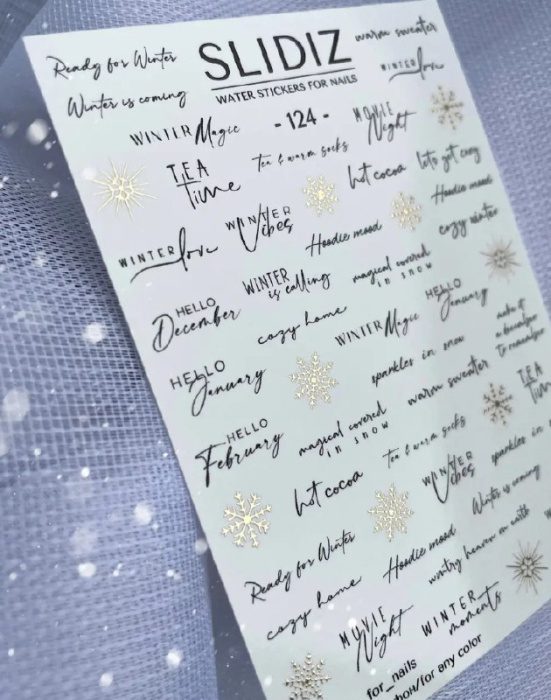 Ready for Winter
SLIDIZ
warm sweater
Winter is coming
WATER STICKERS FOR NAILS
WINTER love
WINTER Magic
- 124 -
MOVIE
Night
TEA
Time
Tea & warm socks
hot cocoa
lets get cozy
Hoodie mood
WINTER love
WINTER
Vibes
Hoodie mood
cozy winter
HELLO
December
WINTER
is calling
magical covered
in snow
HELLO
January
cozy home
WINTER Magic
make it
a december
to remember
HELLO
January
sparkles in snow
TEA
Time
HELLO
February
magical covered
in snow
warm sweater
hot cocoa
Tea & warm socks
WINTER
Vibes
sparkles in
Ready for Winter
Hoodie mood
Winter is coming
cozy home
wintry heaven on earth
MOVIE
Night
WINTER
moments
for_nails
фон/for any color